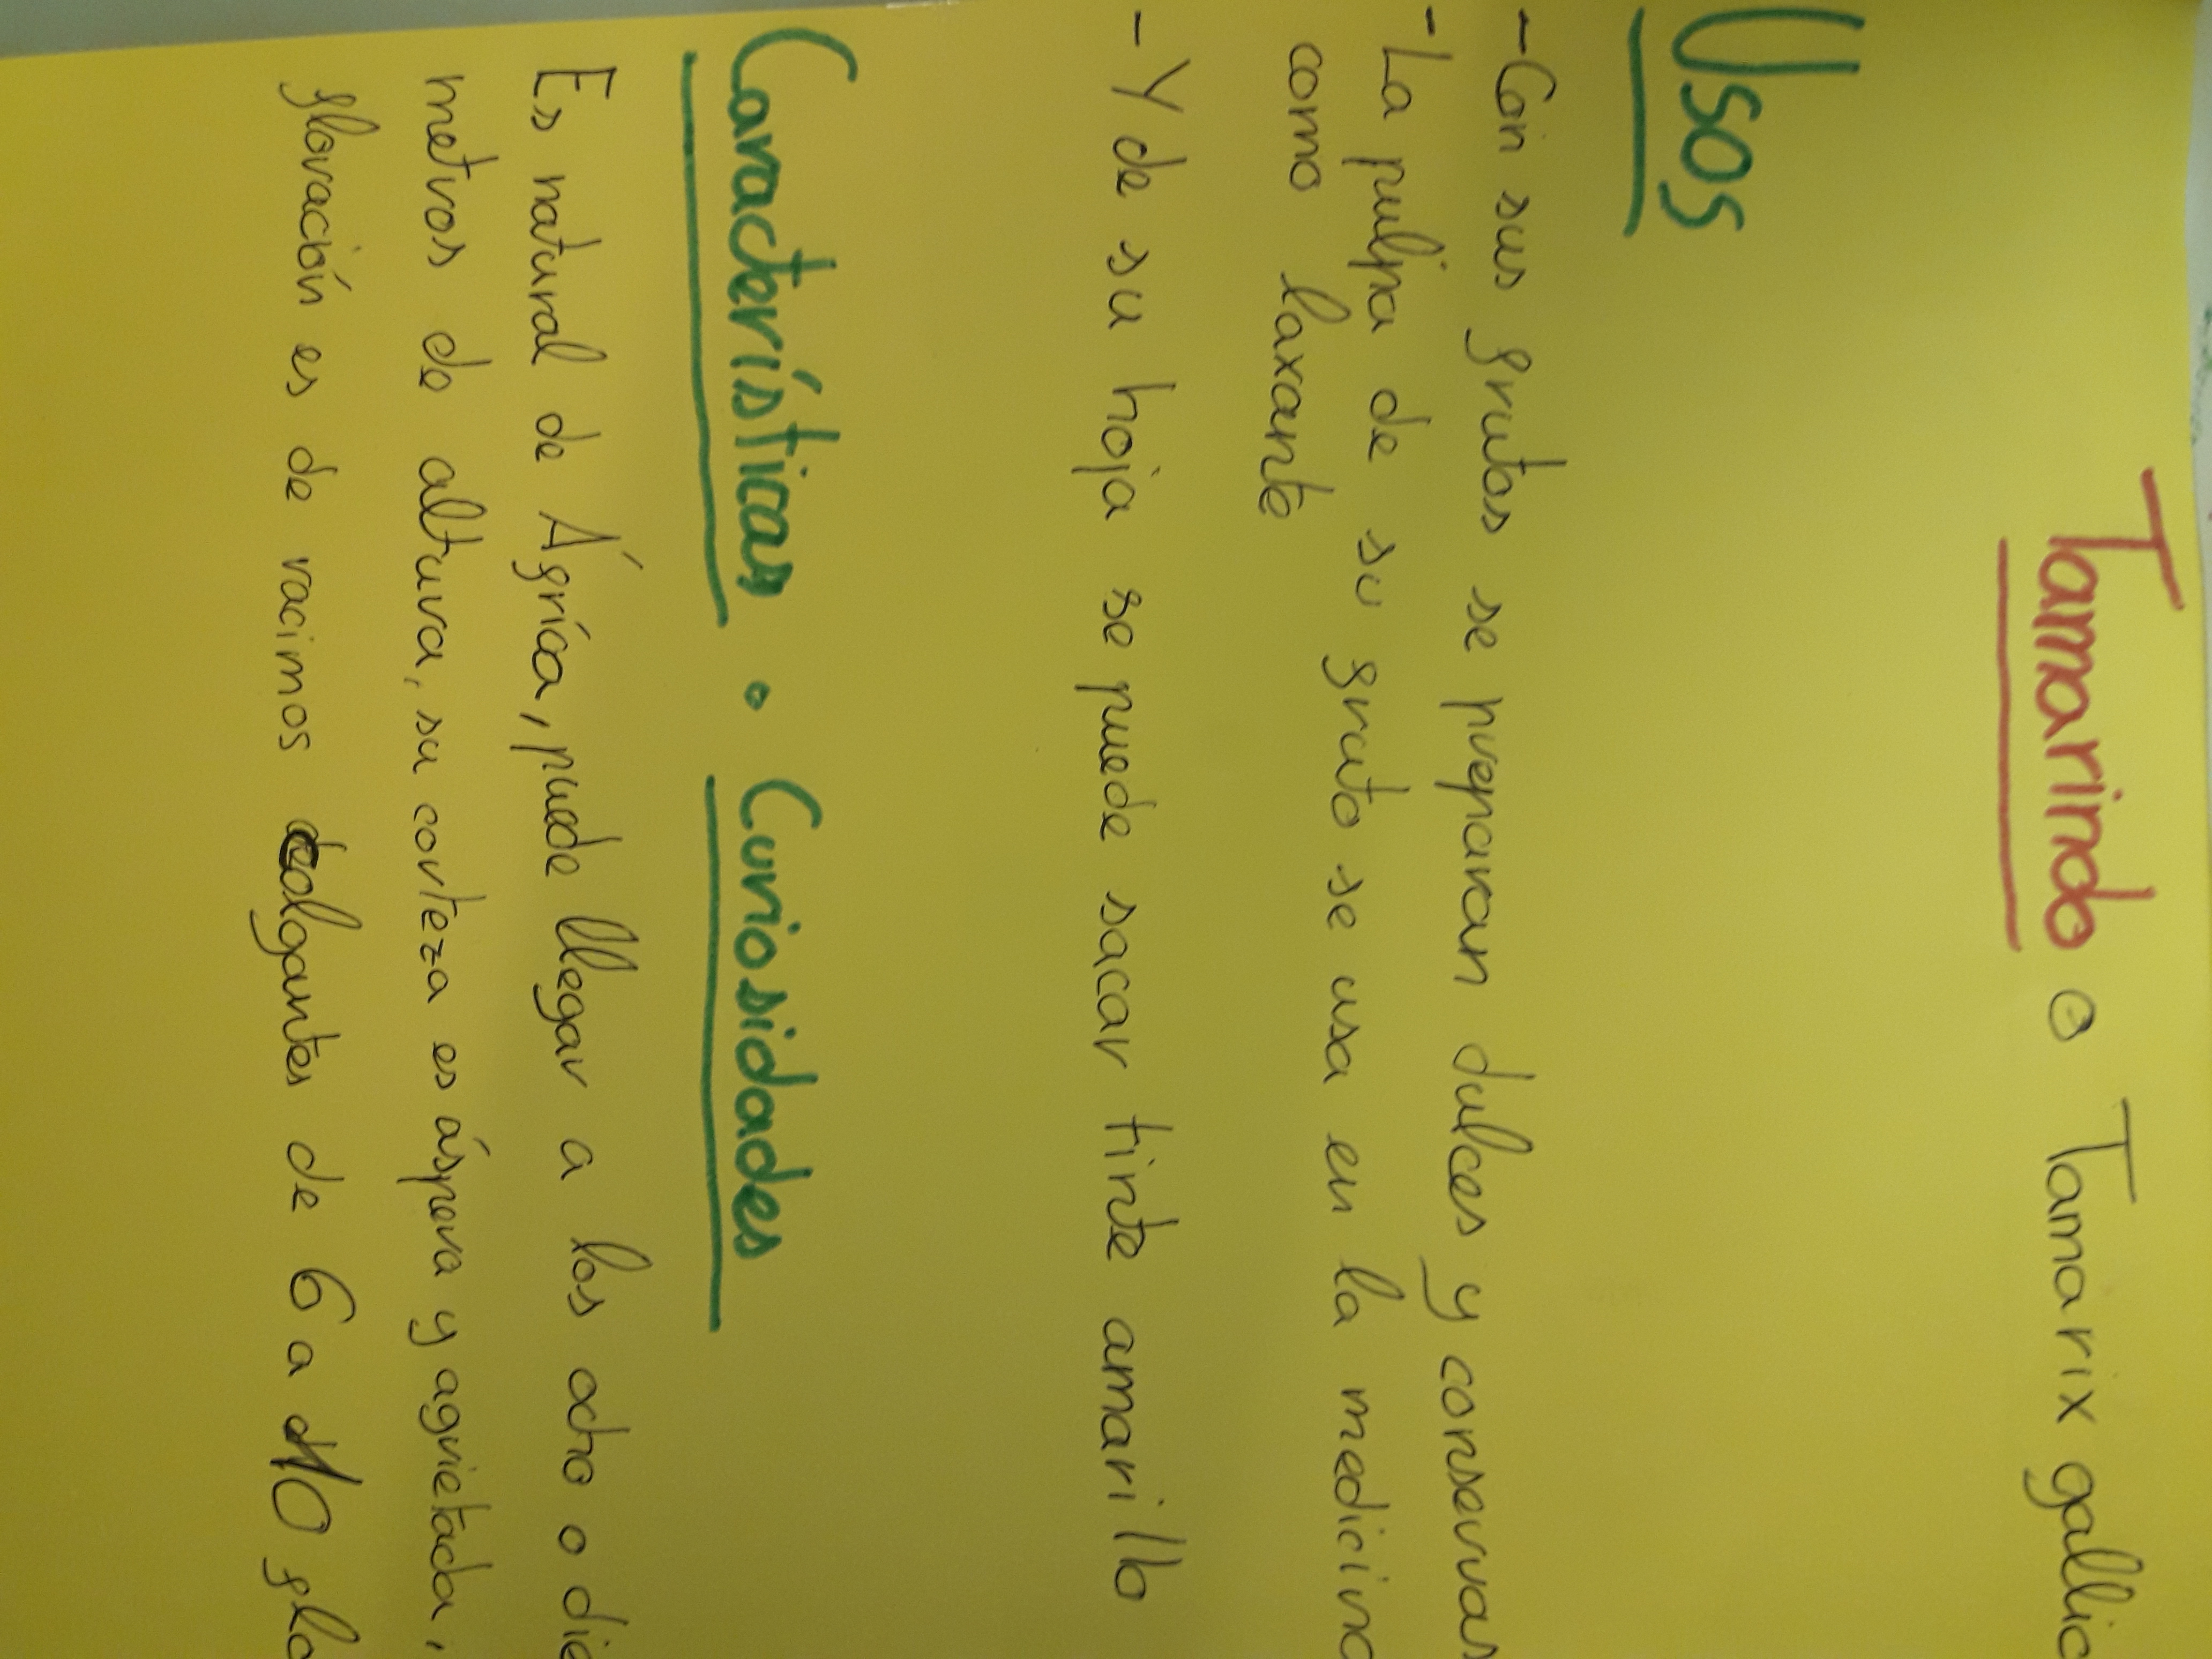 Tamarindo o Tamarix gallic
Usos
- Con sus frutos se preparan dulces y conservas
- La pulpa de su fruto se usa en la medicina
como laxante
- Y de su hoja se puede sacar tinte amarillo
Características o Curiosidades
Es natural de África, puede llegar a los ocho o die
metros de altura, su corteza es áspera y agrietada,
floración es de racimos de 6 a 10 flo